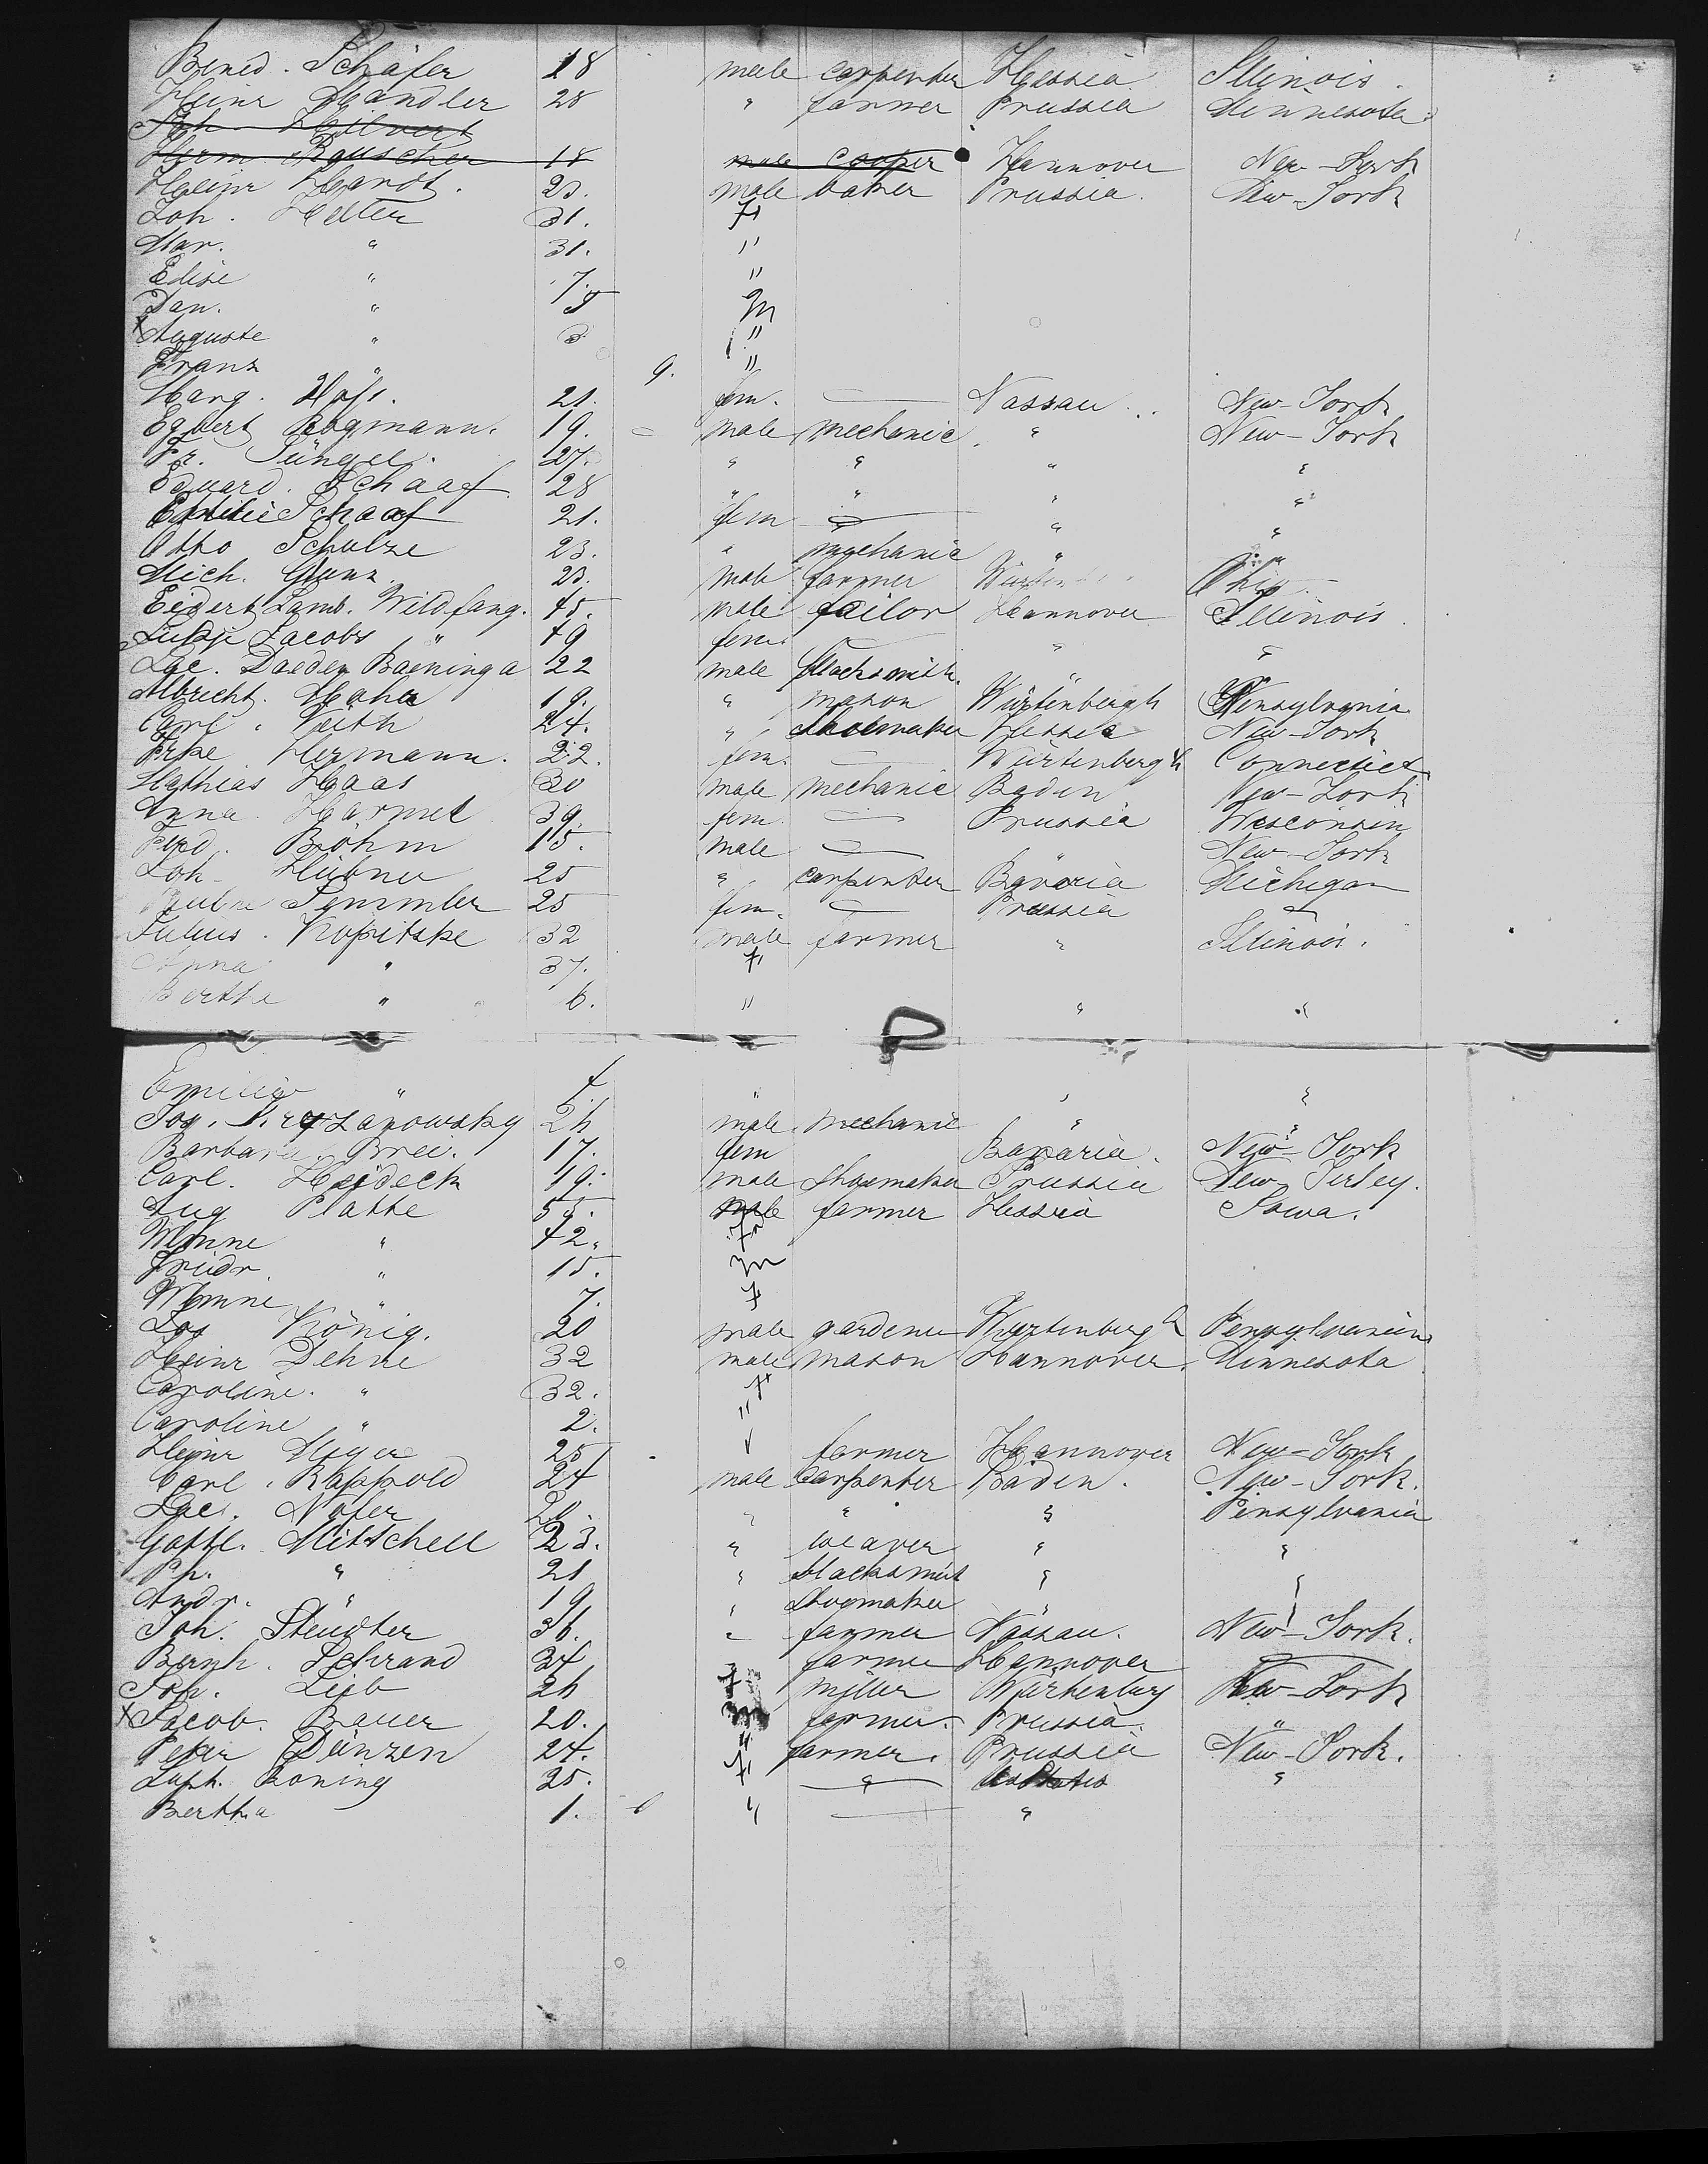 Bened. Schäfer 18 male carpenter Hessia Illinois.
Heinr Mandler 28 " farmer Prussia Minnesota
Joh Hellvert
Herm Bauscher 18 male cooper Hannover New-York
Heinr Hardt. 23. male baker Prussia. New-York
Joh. Helter 31. F
Mar. " 31. "
Elise " 7. "
Dan. " 5 m
x Auguste " 3 "
Franz " 9. "
Marg. Höfs. 21. fem. — Nassau New-York
Egbert Bogmann. 19. male mechanic. " New-York
Fr. Jüngel. 27. " " " "
Eduard. Schaaf 28 " " " "
Emilie Schaaf 21. fem — " "
Otto Schulze 23. " mechanic " "
Mich. Gunz 23. male farmer Würten Ohio
Eidert Lamb. Wildfang. 45. male tailor Hannover Illinois
Jacobs " 49 fem. — " "
Jac. Daeden Baeninga 22 male blacksmith. " "
Albrecht. Maha 19. " mason Würtenbergh Pensylvania
Carl. Veith 24. " Shoemaker Hessia New-York
Frke. Hermann. 22. fem. — Würtenbergh Connectict
Mathias Haas 30 male mechanic Baden New-York
Anna. Harmel 39. fem — Prussia Wisconsin
Ferd. Böhm 15. male — " New-York
Joh. Hübner 25 " carpenter Bavaria Michigan
Semmler 25 fem. — Prussia —
Julius. Kopitske 32 male farmer " Illinois.
Anna " 37. F
Berthe " 6. " " "
Emilie " " " "
Jos. 26 male mechanic " "
Barbara. Brei. 17. fem Bavaria. New-York
Carl. Heideck 19. male Shoemaker Prussia New Jersey.
Aug Platte 55. male farmer Hessia Iowa.
Wlmne " 42. F
Friedr. " 15. m
Wlmne " 7. F
Jos König. 20 male gardener Würtenbergh Pensylvania
Heinr Dehne 32 male mason Hannover. Minnesota
Caroline. " 32. F
Caroline " 2. "
Heinr Meyer 25 farmer Hannover New-York
Carl. Rappold 24 male Carpenter Baden. New-York.
Jac. Nofer " " " Pensylvania
Gottl. Mittschell 23. " weaver " "
Ph. " 21 " blacksmit " "
Andr. " 19 " Shoemaker " "
Joh. Steudter 36. " farmer Nassau. New-York.
Bernh. Schrand 34 " farmer Hannover —
Joh. Lieb 26 miller Würtenburg New-York
x Jacob. Bauer 20. farmer. Prussia. "
Peter Dünzen 24. " farmer. Prussia New-York.
Koning 25. F — "
Bertha 1. " — "